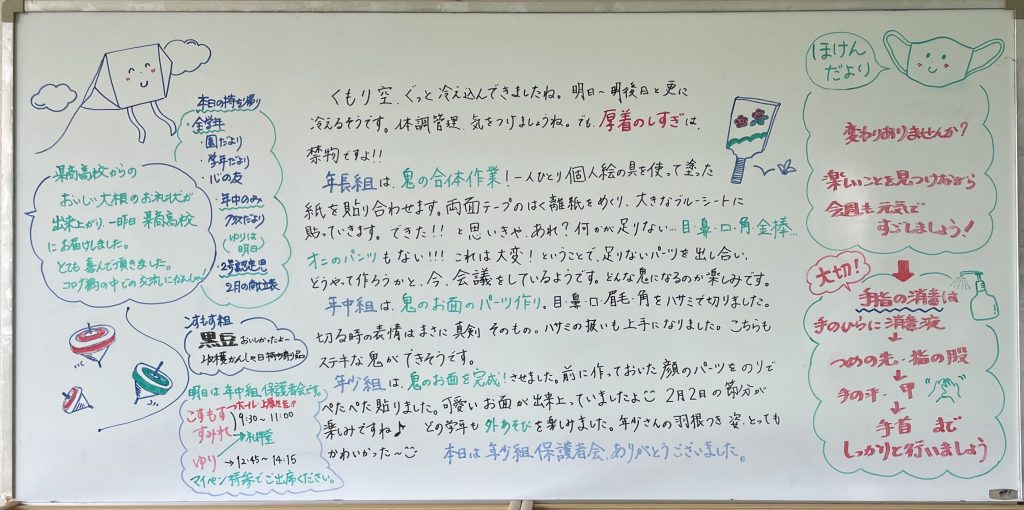 本日の持ち帰り
・全学年
・園だより
・学年だより
・心の友
・年中のみ
クラスだより
(ゆりは
明日)
・2号認定児
2月の献立表
県商高校からの
おいしい大根のお礼状が
出来上がり、一昨日 県商高校
にお届けしました。
とても喜んで頂きました。
コロナ禍の中での交流に
こすもす組
黒豆 おいしかったよ〜
明日は年中組保護者会です。
こすもす
すみれ
9:30〜11:00
→礼拝堂
ゆり→12:45〜14:15
マイペン持参でご出席ください。
くもり空、ぐっと冷え込んできましたね。明日〜明後日と更に
冷えるそうです。体調管理、気をつけましょうね。でも、厚着のしすぎは、
禁物ですよ!!
年長組は、鬼の合体作業!一人ひとり個人絵の具を使って塗った
紙を貼り合わせます。両面テープのはく離紙をめくり、大きなブルーシートに
貼っていきます。できた!!と思いきや、あれ?何かが足りない…目・鼻・口・角・金棒…
オニのパンツもない!!!これは大変!ということで、足りないパーツを出し合い、
どうやって作ろうかと、今、会議をしているようです。どんな鬼になるのか楽しみです。
年中組は、鬼のお面のパーツ作り。目・鼻・口・眉毛・角をハサミで切りました。
切る時の表情はまさに真剣そのもの。ハサミの扱いも上手になりました。こちらも
ステキな鬼ができそうです。
年少組は、鬼のお面を完成!させました。前に作っておいた顔のパーツをのりで
ぺたぺた貼りました。可愛いお面が出来上っていましたよ 2月2日の節分が
楽しみですね♪ どの学年も外あそびを楽しみました。年少さんの羽根つき姿、とっても
かわいかった〜
本日は年少組保護者会、ありがとうございました。
ほけん
だより
変わりありませんか?
楽しいことを見つけながら
今週も元気で
すごしましょう!
大切!
手指の消毒は
手のひらに消毒液
↓
つめの先・指の股
↓
手の平・甲
↓
手首まで
しっかりと行いましょう